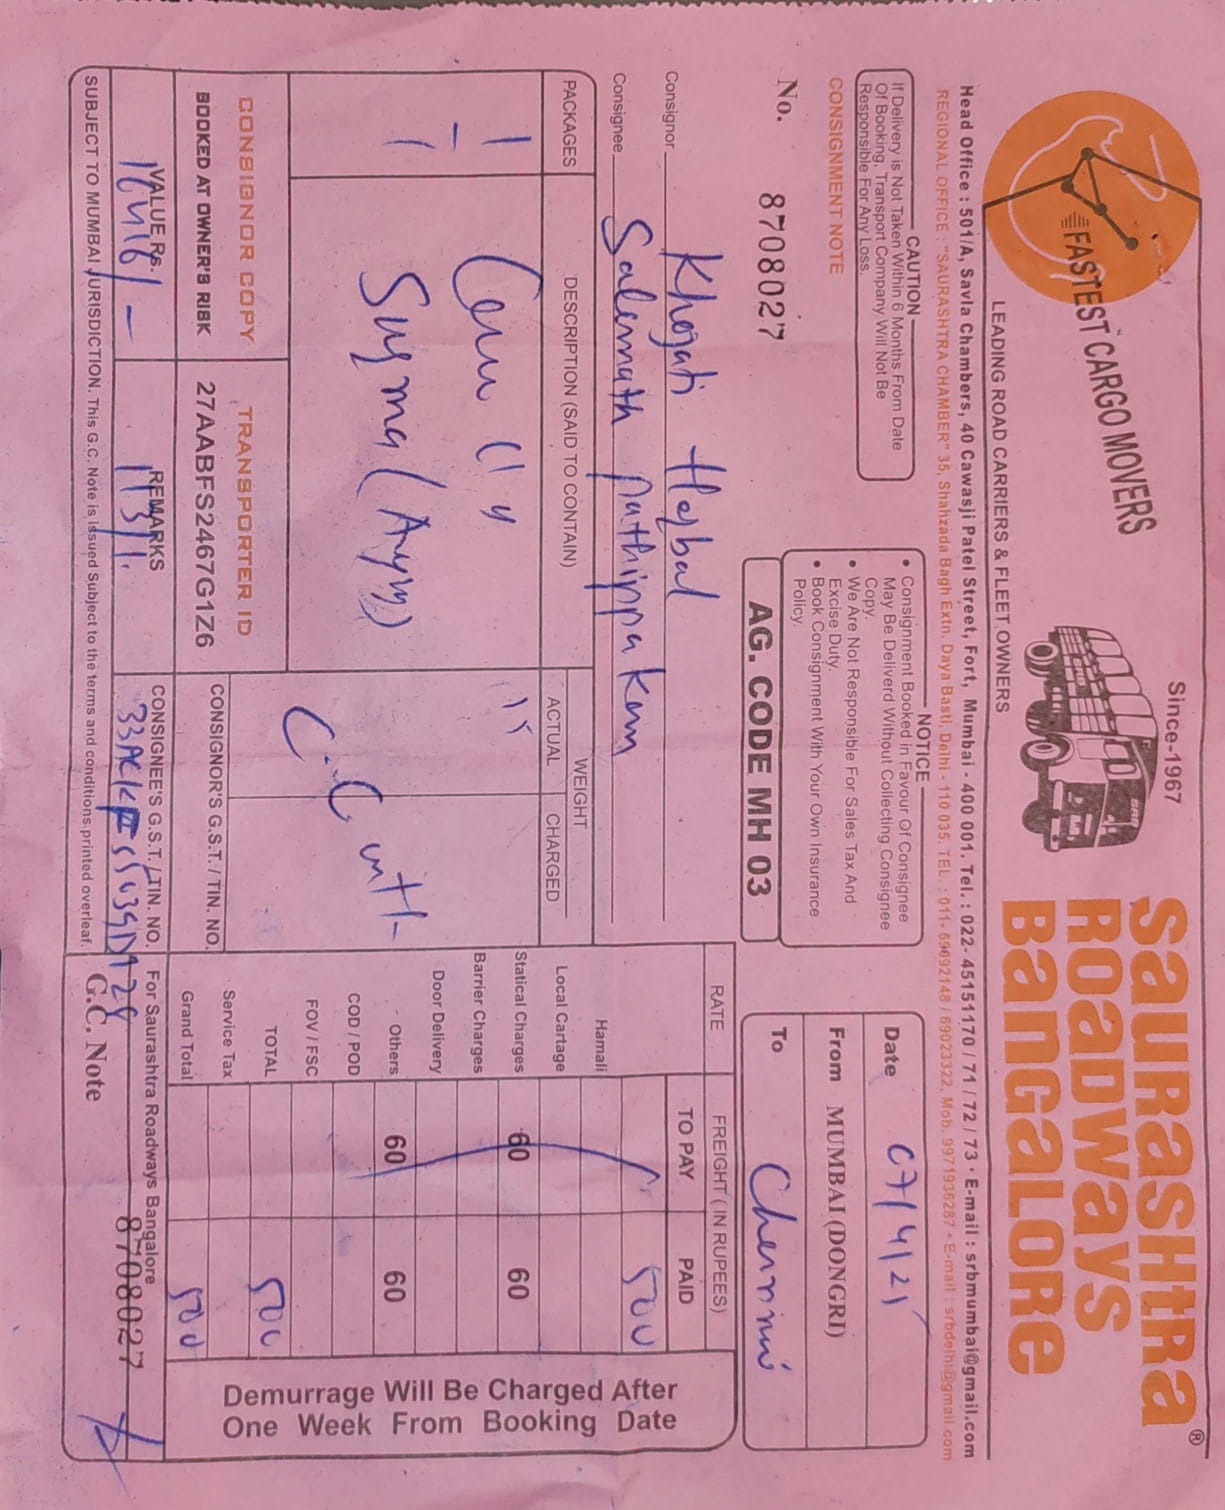 FASTEST CARGO MOVERS
Since-1967
SauRaSHtRa
ROaDWayS
BaNGaLORe
®
LEADING ROAD CARRIERS & FLEET OWNERS
Head Office : 501/A, Savla Chambers, 40 Cawasji Patel Street, Fort, Mumbai - 400 001. Tel.: 022- 45151170 / 71 / 72 / 73 · E-mail : srbmumbai@gmail.com
REGIONAL OFFICE : "SAURASHTRA CHAMBER" 35, Shahzada Bagh Extn. Daya Basti, Delhi - 110 035. TEL. : 011- 69092148 / 69023322, Mob. 9971936287 • E-mail : srbdelhi@gmail.com
CAUTION
If Delivery is Not Taken Within 6 Months From Date
Of Booking, Transport Company Will Not Be
Responsible For Any Loss.
NOTICE
• Consignment Booked in Favour Of Consignee
May Be Deliverd Without Collecting Consignee
Copy.
• We Are Not Responsible For Sales Tax And
Excise Duty.
• Book Consignment With Your Own Insurance
Policy.
CONSIGNMENT NOTE
No. 8708027
AG. CODE MH 03
Date 07/4/25
From MUMBAI (DONGRI)
To Chennai
Consignor Khojati Herbal
Consignee Salemath
PACKAGES
DESCRIPTION (SAID TO CONTAIN)
WEIGHT
ACTUAL
CHARGED
RATE
FREIGHT ( IN RUPEES)
TO PAY
PAID
500
Hamali
Local Cartage
Statical Charges 60 60
Barrier Charges
Door Delivery
Others 60 60
COD / POD
FOV / FSC
TOTAL 500
Service Tax
Grand Total 500
1
1
Surma
15
C.C
CONSIGNOR COPY
TRANSPORTER ID
BOOKED AT OWNER'S RISK
27AABFS2467G1Z6
CONSIGNOR'S G.S.T. / TIN. NO.
VALUE Rs.
REMARKS
CONSIGNEE'S G.S.T. / TIN. NO.
For Saurashtra Roadways Bangalore
Demurrage Will Be Charged After
One Week From Booking Date
SUBJECT TO MUMBAI JURISDICTION. This G.C. Note is issued Subject to the terms and conditions printed overleaf.
G.C. Note 8708027